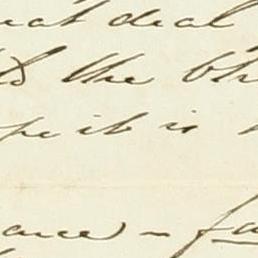 eat deal
the br
pe it is
ance - fa